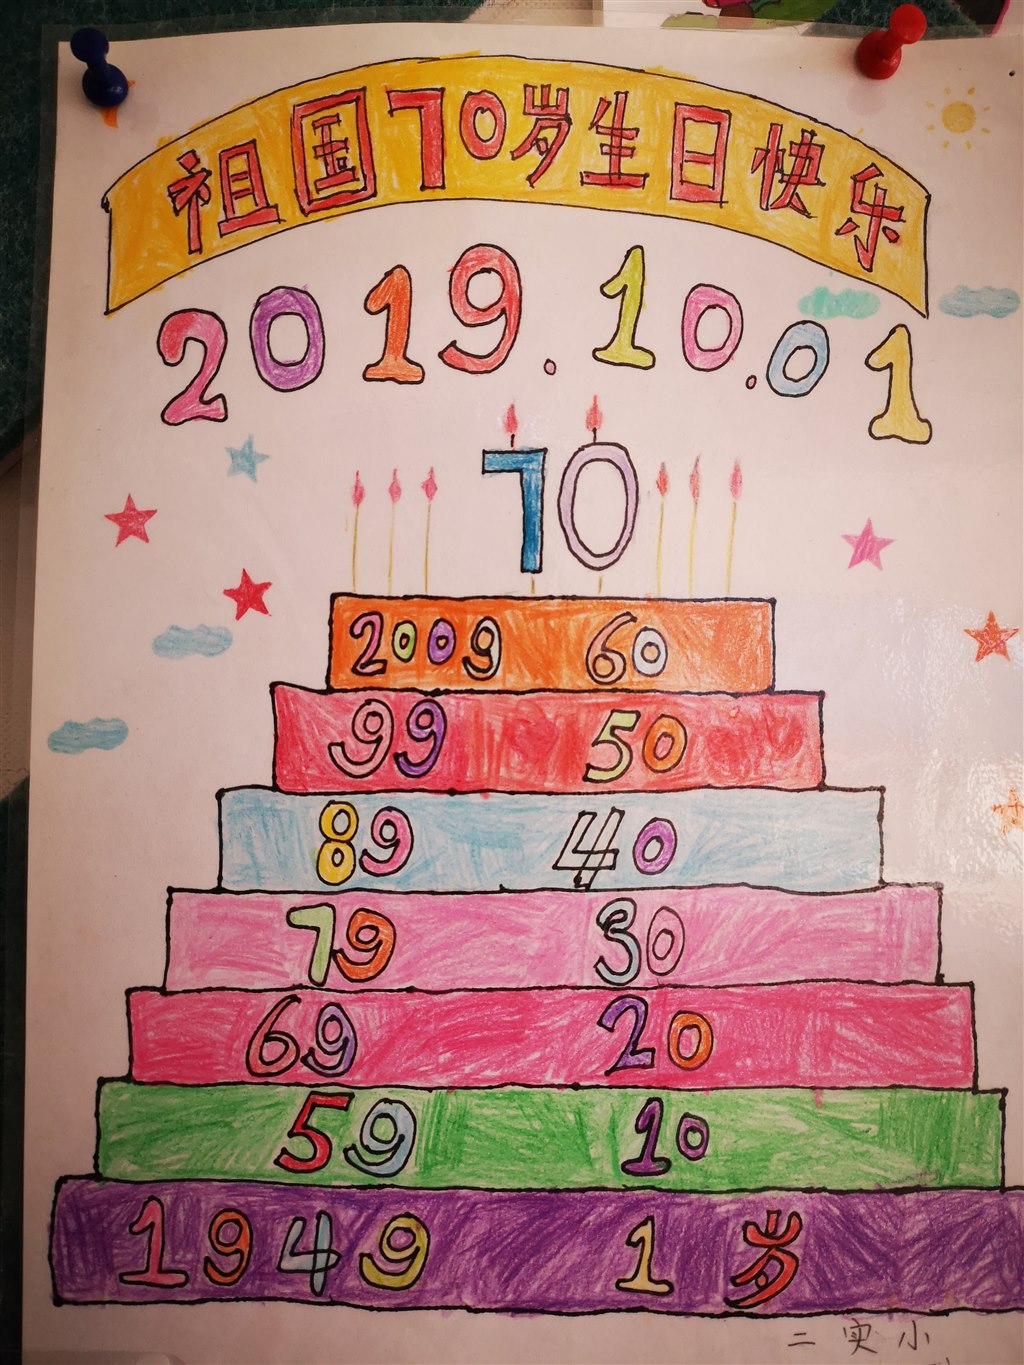 祖国70岁生日快乐
2019.10.01
70
2009 60
99 50
89 40
79 30
69 20
59 10
1949 1岁
二实小